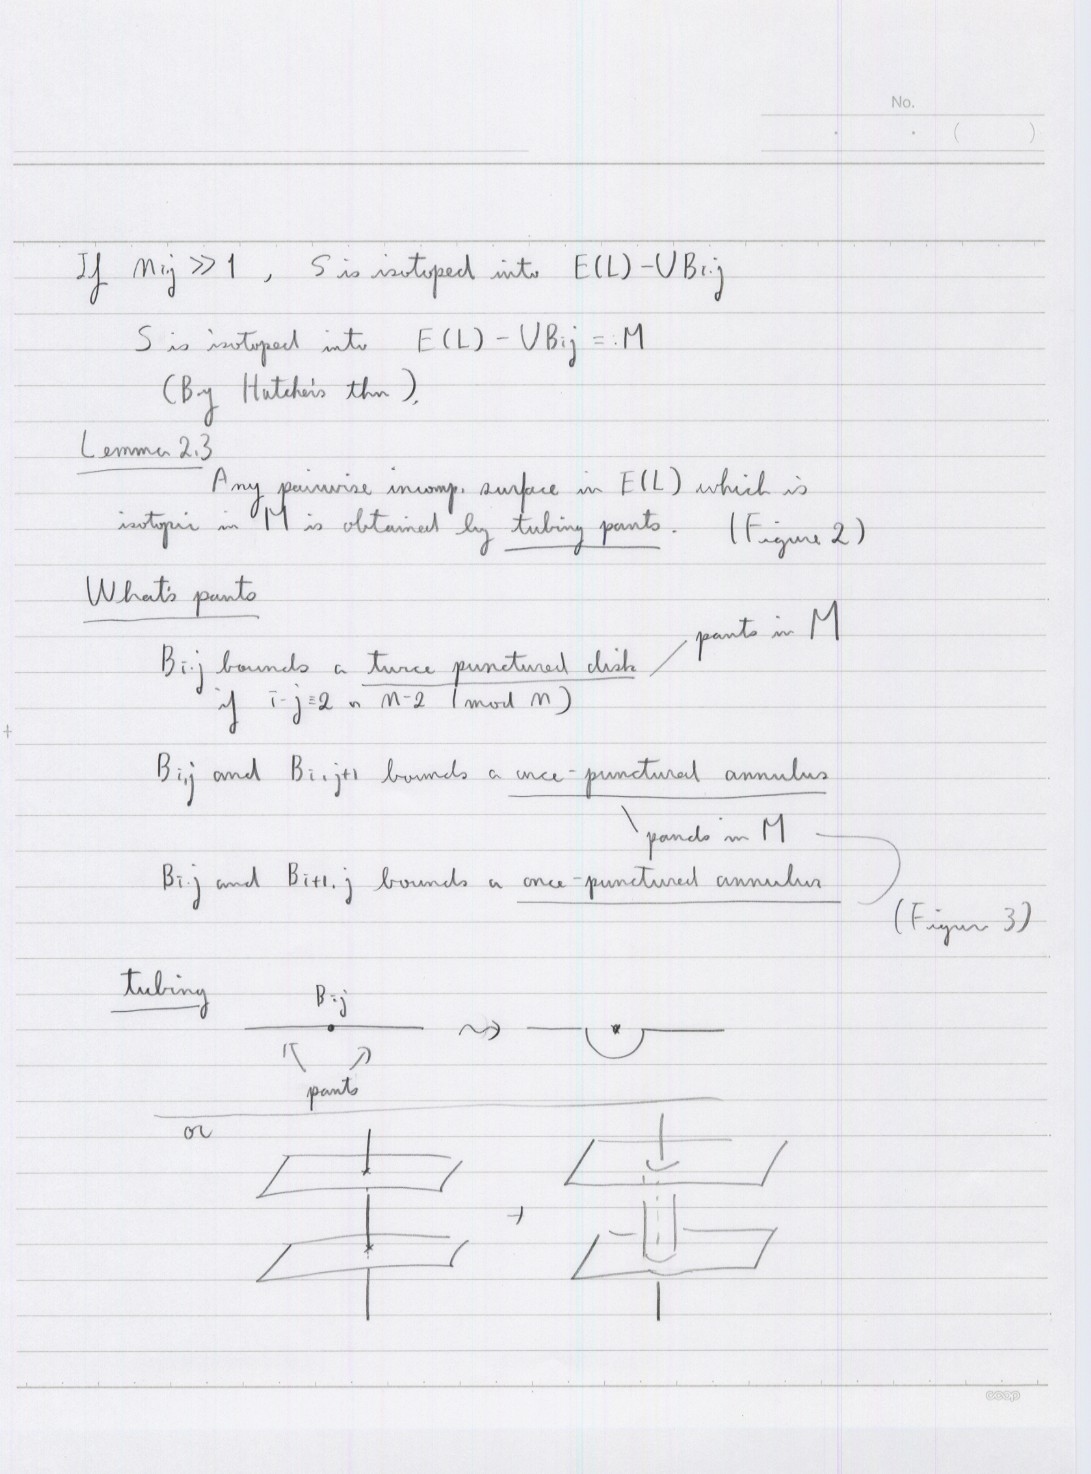 No.
If nij ≫ 1 , S is isotoped into E(L) - ∪Bi.j
S is isotoped into E(L) - ∪Bij =: M
(By Hatcher's thm).
Lemma 2.3
Any pairwise incomp. surface in E(L) which is
isotopic in M is obtained by tubing pants. (Figure 2)
What's pants
pants in M
Bi.j bounds a twice punctured disk
if i-j≡2 or n-2 (mod n)
Bi,j and Bi,j+1 bounds a once-punctured annulus
pands in M
Bi.j and Bi+1.j bounds a once-punctured annulus
(Figure 3)
tubing
Bij
pants
or
coop